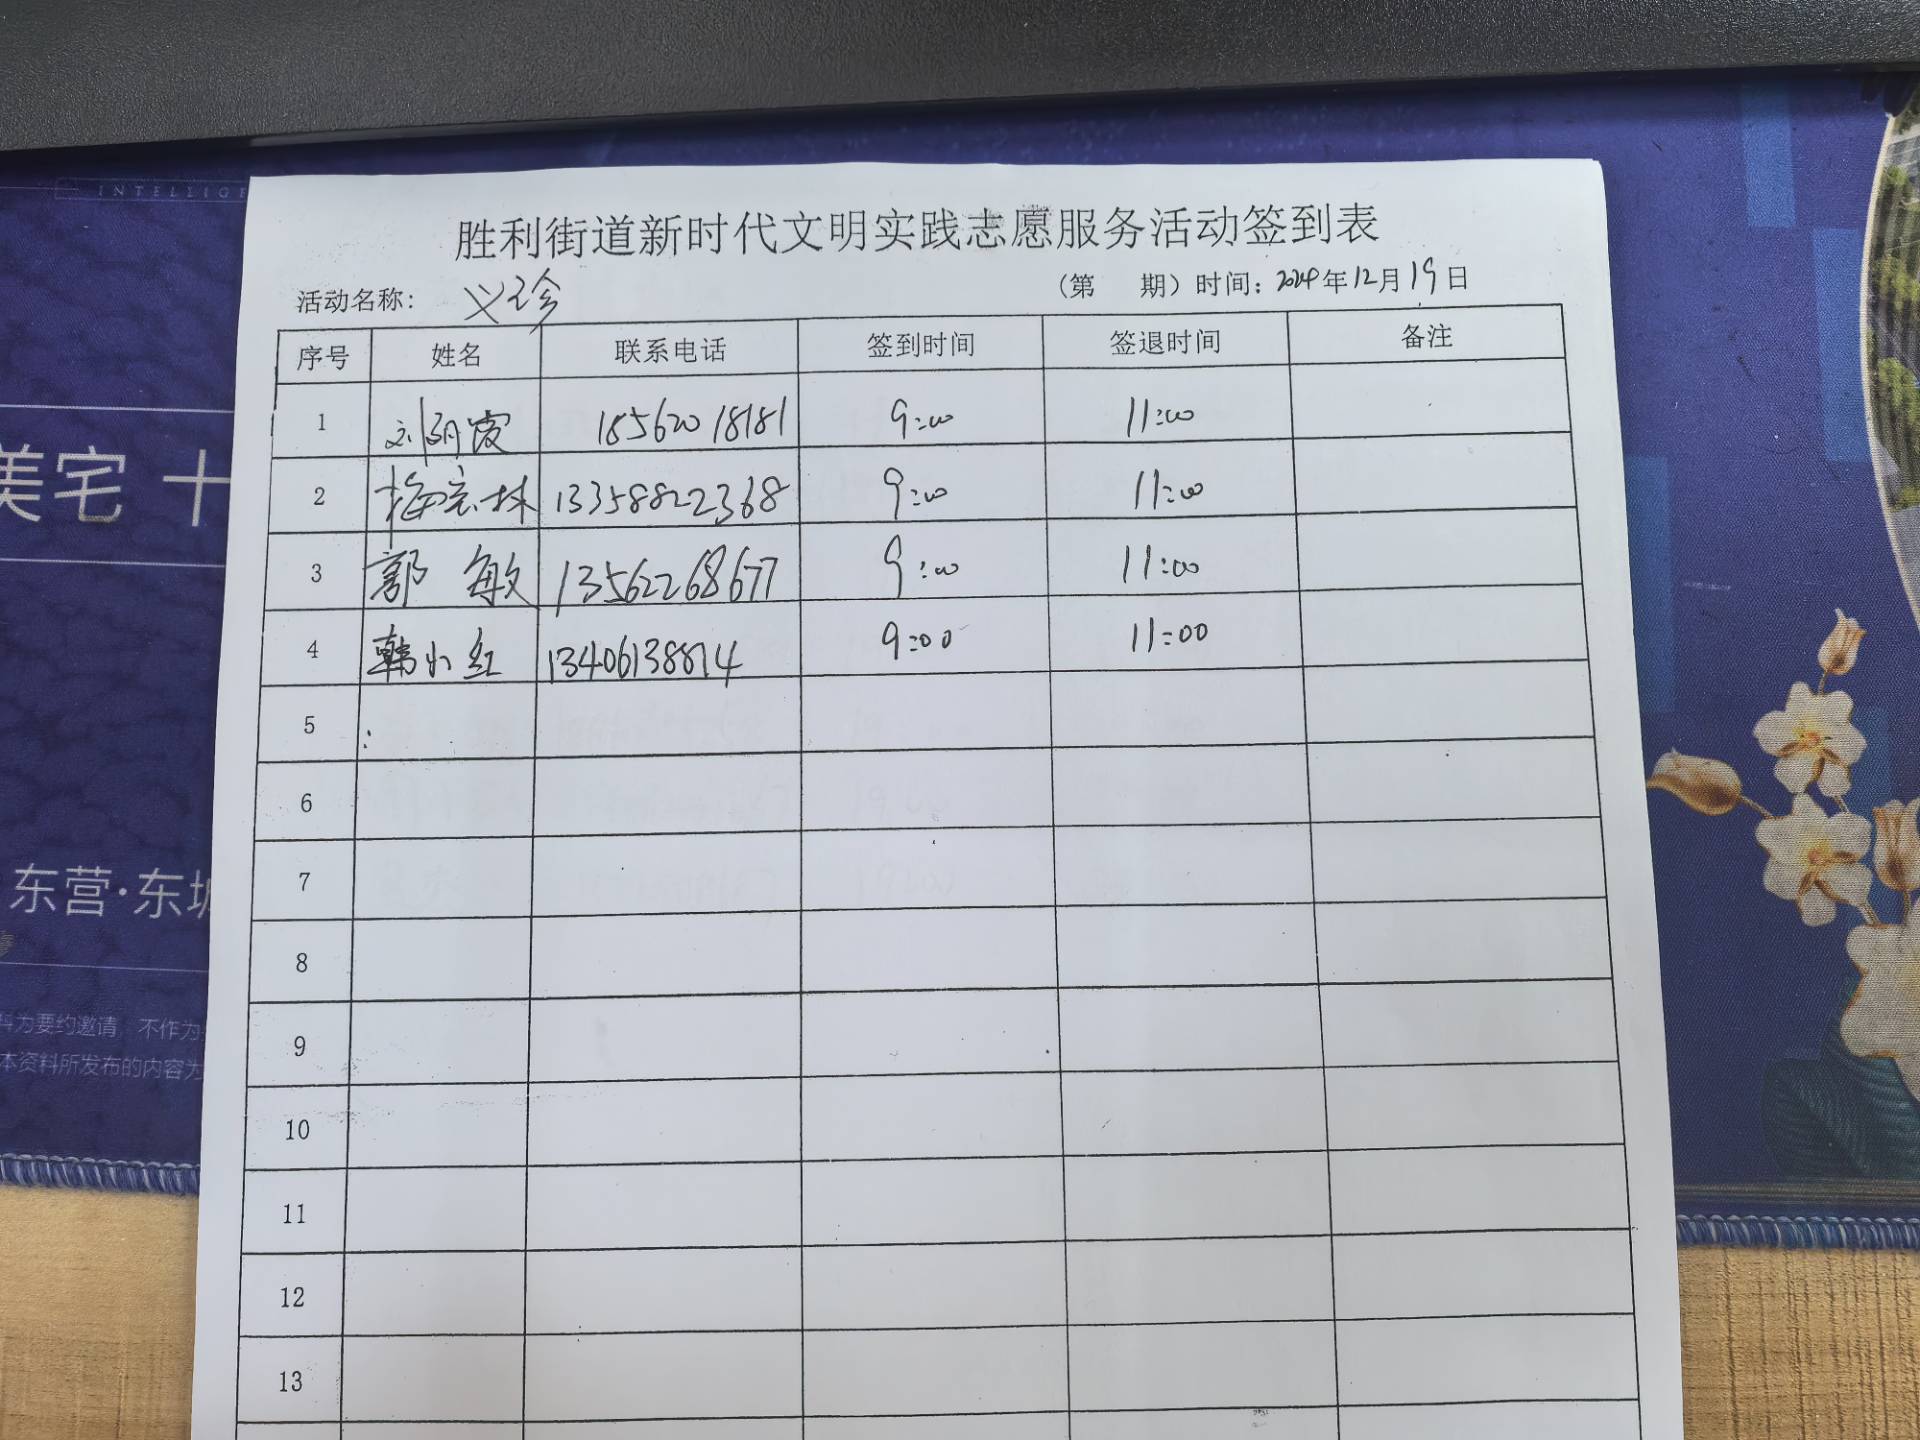 INTELLIGE
美宅 十
东营·东城
料为要约邀请,不作为
本资料所发布的内容为
胜利街道新时代文明实践志愿服务活动签到表
活动名称: 义诊 (第 期)时间: 2024年12月19日
序号 姓名 联系电话 签到时间 签退时间 备注
1 刘阴霞 18562018181 9:00 11:00
2 梅宏林 13358822368 9:00 11:00
3 郭敏 13562268677 9:00 11:00
4 韩小红 13406138814 9:00 11:00
5
6
7
8
9
10
11
12
13